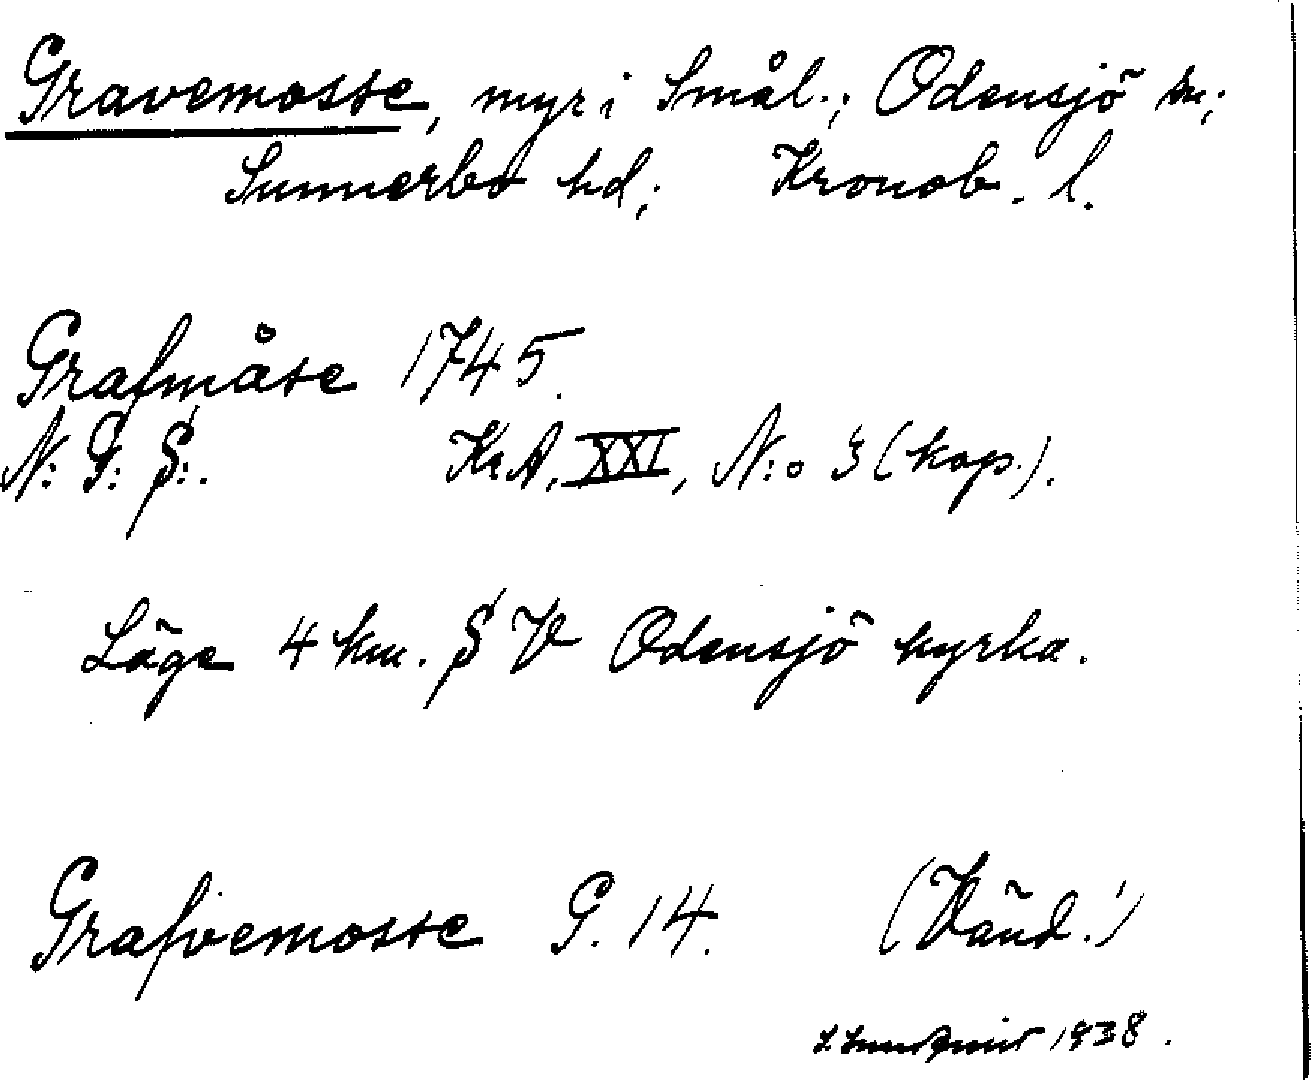 Gravemosse, myr i Smål.; Odensjö sn;
Sunnerbo hd; Kronob. l.
Grafmåse 1745.
N: G: S:. Kr.A. XXI, N:o 3 (kop.).
Läge 4 km. S V Odensjö kyrka.
Grafvemosse G. 14. (Vänd!)
1938.